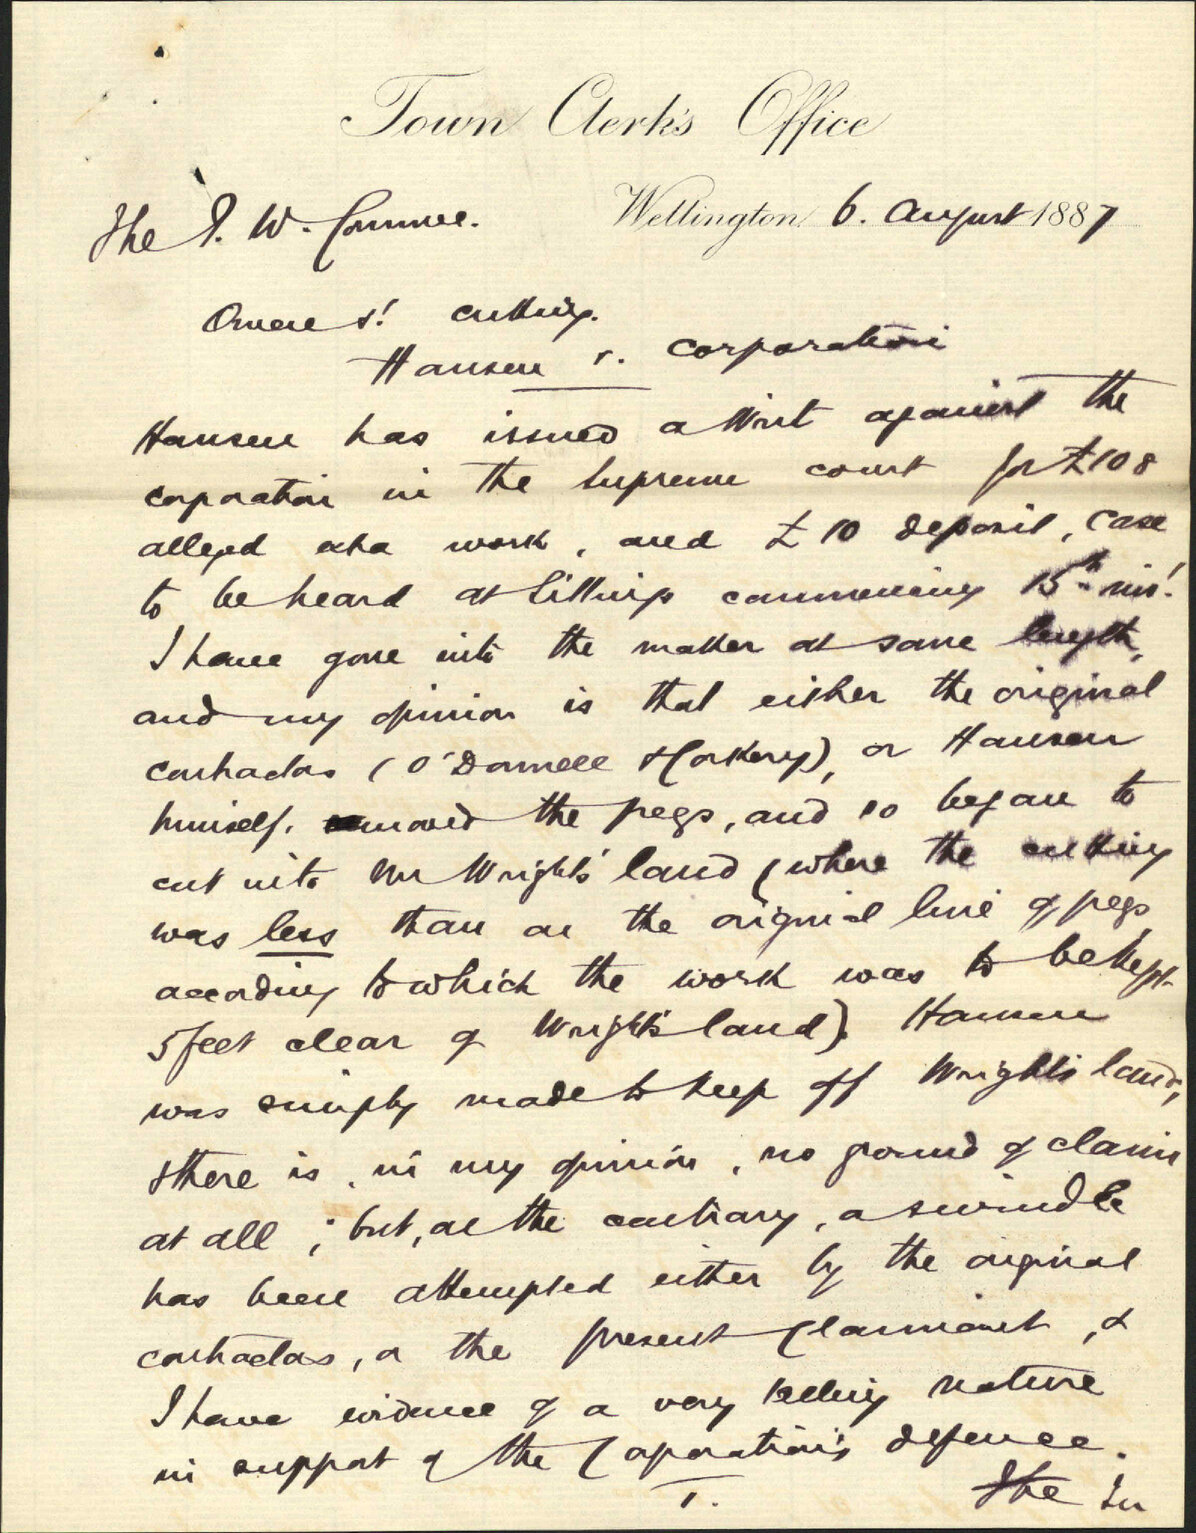 Town Clerk's Office
Wellington 6. August 1887
The P. W. Commee.
Oman St. cutting.
Hansen v. Corporation
Hansen has issued a Writ against the
corporation in the Supreme Court for £108
alleged extra work, and £10 deposit, case
to be heard at Sittings commencing 15th inst.
I have gone into the matter at some length,
and my opinion is that either the original
contractors (O'Donnell & Corkery), or Hansen
himself, moved the pegs, and so began to
cut into Mr Wright's land (where the cutting
was less than on the original line of pegs
according to which the work was to be kept
5 feet clear of Wright's land). Hansen
was simply made to keep off Wright's land,
& there is, in my opinion, no ground of claim
at all; but, on the contrary, a swindle
has been attempted either by the original
contractors, or the present Claimant, &
I have evidence of a very telling nature
in support of the Corporation's defence.
1.
The In